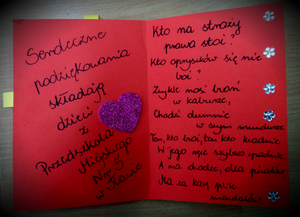 Serdeczne
podziękowania
składają
dzieci
z
Przedszkola
Miejskiego
Nr
w Iławie
Kto na straży
prawa stoi?
Kto opryszków się nie
boi?
Zwykle nosi broń
w kaburze,
Chodzi dumnie
w swym mundurze.
Ten, kto broi, ten kto kradnie
W jego ręce szybko wpadnie
A ma drodze, dla piratów
Ma za karę plik
mandatów!